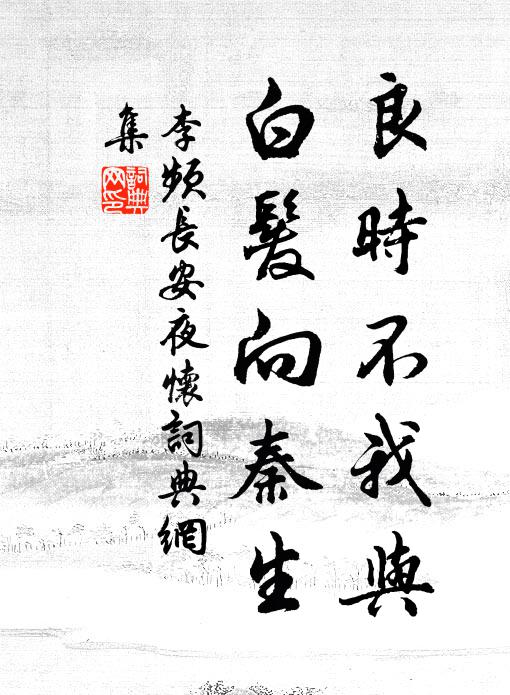 良時不我與
白髮向秦生
李頻長安夜懷詞典網
集
詞典
网印